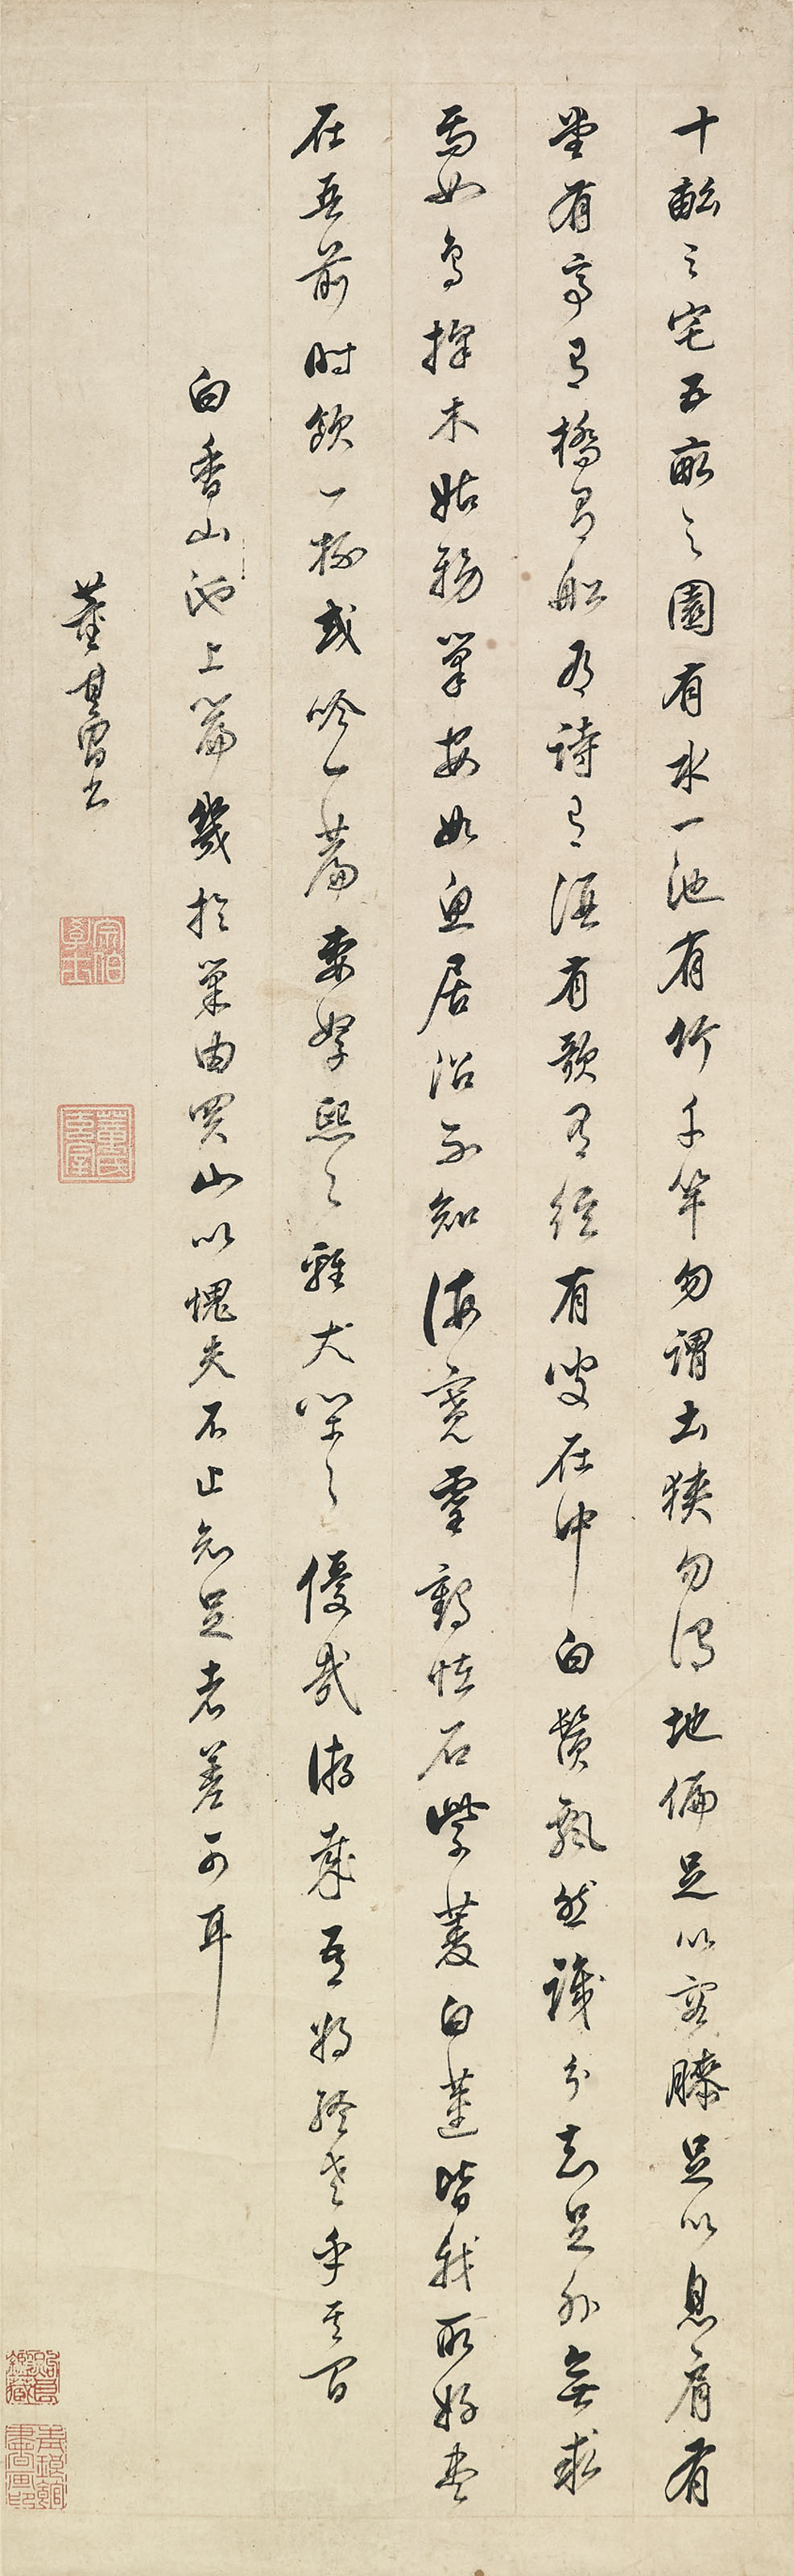 十畝之宅五畝之園有水一池有竹千竿勿謂土狹勿謂地偏足以容膝足以息肩有
堂有亭有橋有船有詩有酒有歌有絃有叟在中白鬚飄然識分知足外無求
焉如鳥擇木姑務巢安如魚居沼不知海寬靈鶴怪石紫菱白蓮皆我所好盡
在吾前時飲一杯或吟一篇妻孥熙〻雞犬閒〻優哉游哉吾將終老乎其間
白香山池上篇幾於巢由買山以愧夫不止知足者差可耳
董其昌書
宗伯學士
董氏玄宰